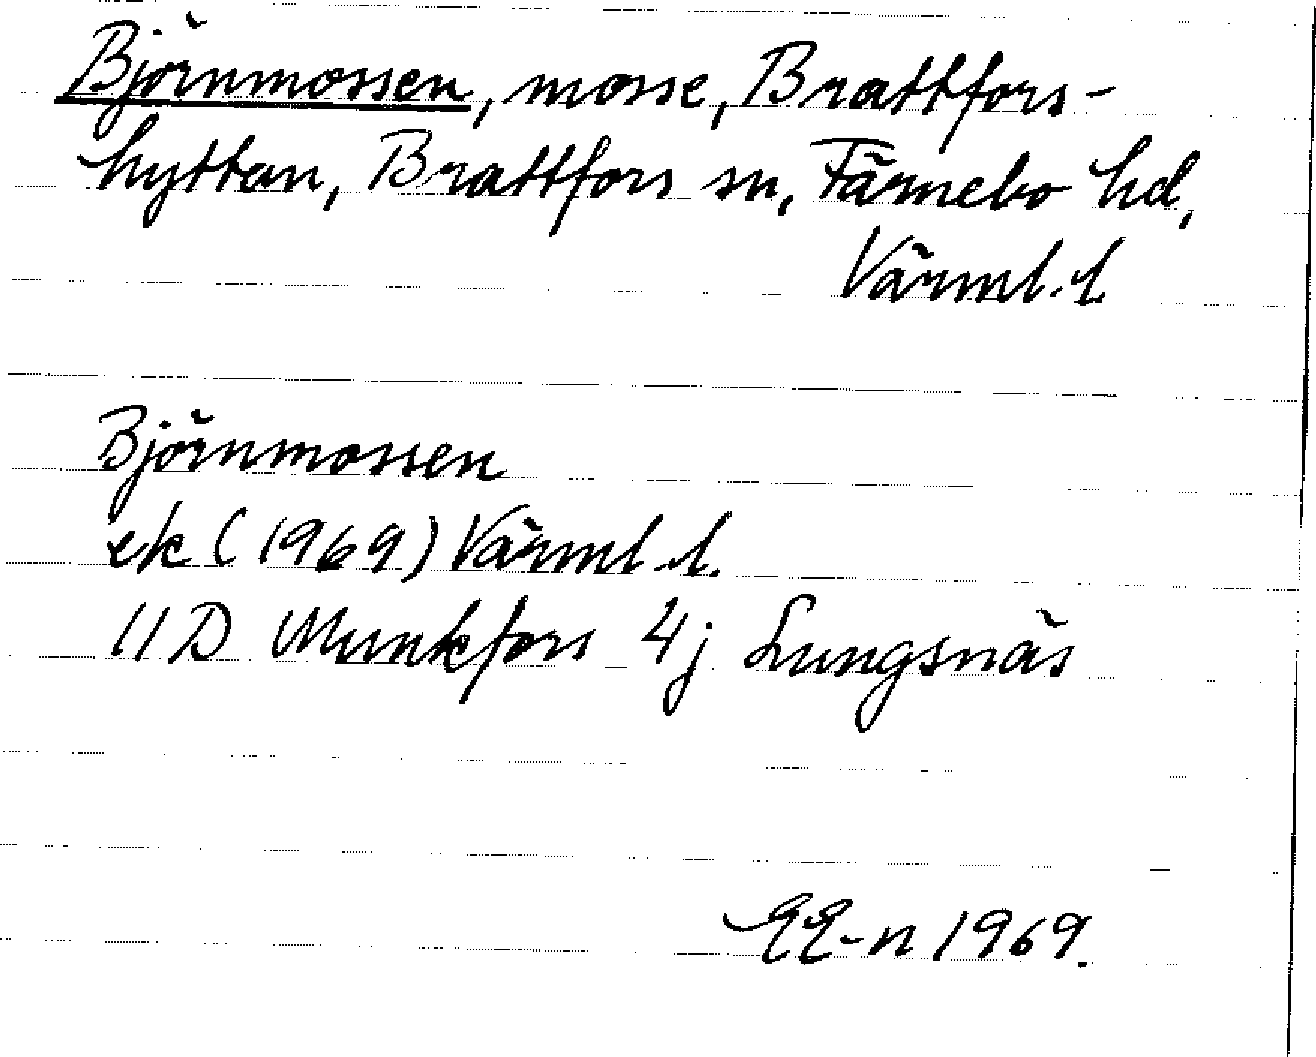 Björnmossen, mosse, Brattfors-
hyttan, Brattfors sn, Färnebo hd,
Värml. l.
Björnmossen
ek (1969) Värml. l.
11D Munkfors 4j Lungsnäs
EE-n 1969.